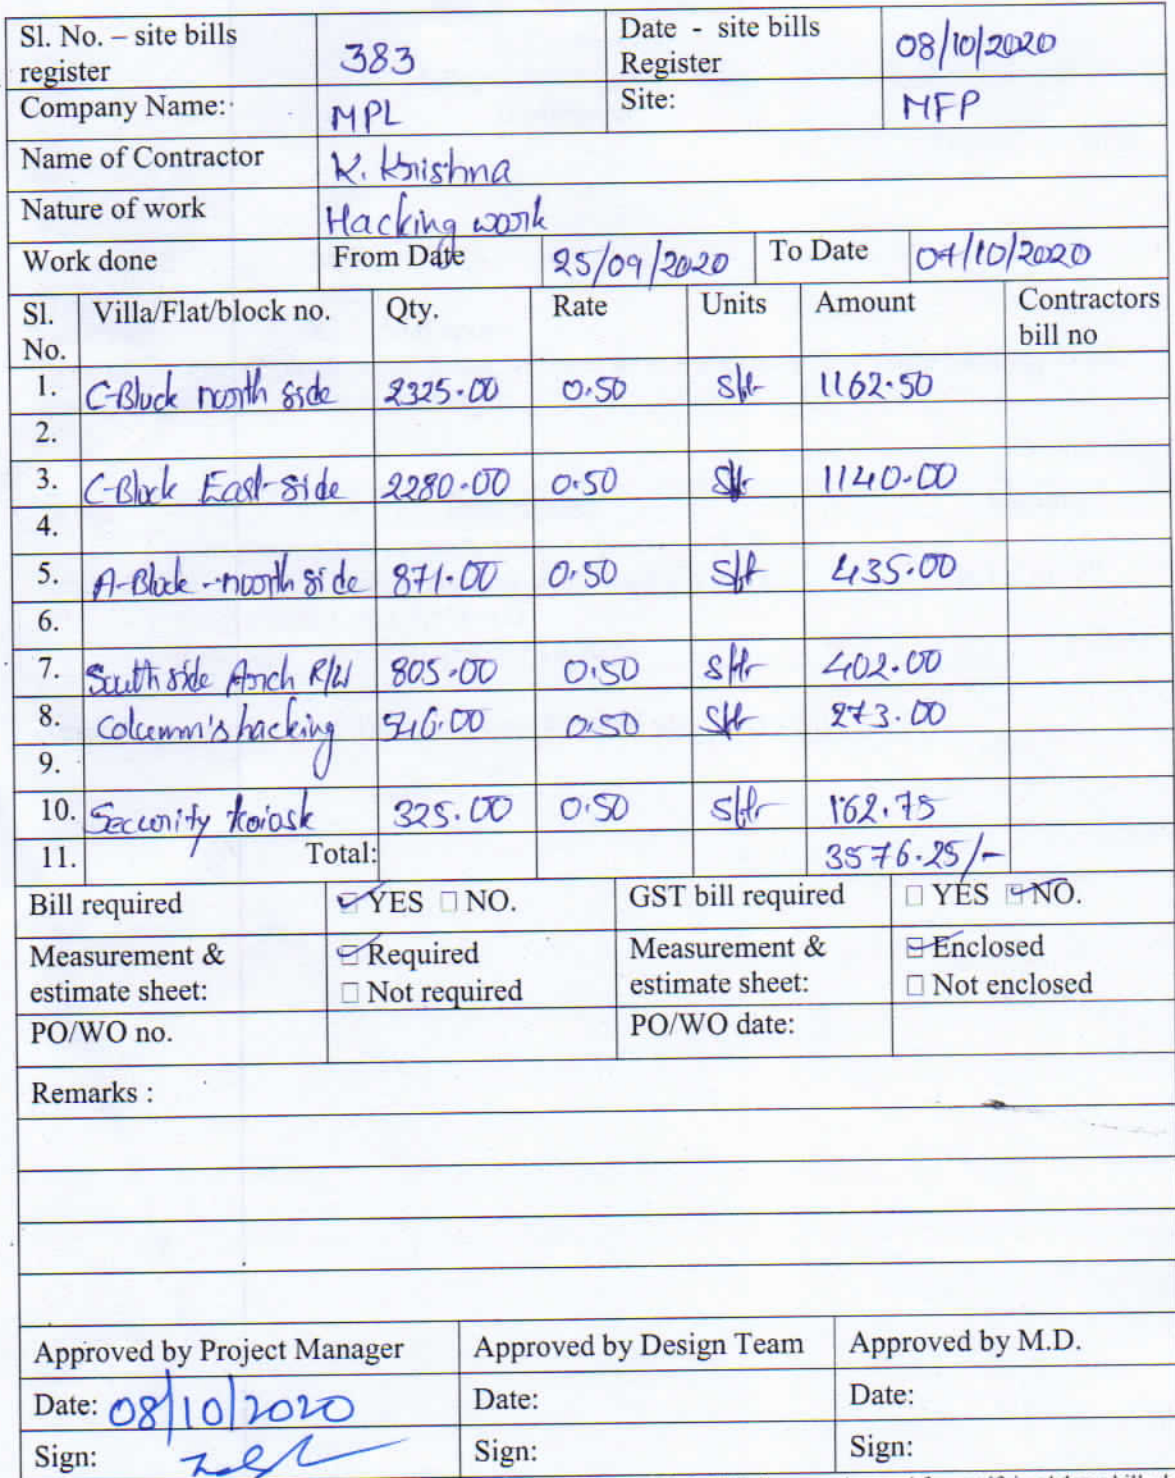 Sl. No. – site bills register 383 Date - site bills Register 08/10/2020
Company Name: MPL Site: MFP
Name of Contractor K. Krishna
Nature of work Hacking work
Work done From Date 25/09/2020 To Date 07/10/2020
Sl. No. Villa/Flat/block no. Qty. Rate Units Amount Contractors bill no
1. C-Block north side 2325.00 0.50 sft 1162.50
2.
3. C-Block East side 2280.00 0.50 sft 1140.00
4.
5. A-Block - north side 871.00 0.50 sft 435.00
6.
7. South side Arch R/W 805.00 0.50 sft 402.00
8. Column's hacking 546.00 0.50 sft 273.00
9.
10. Security koiosk 325.00 0.50 sft 162.75
11. Total: 3576.25/-
Bill required YES NO. GST bill required YES NO.
Measurement & estimate sheet: Required Not required Measurement & estimate sheet: Enclosed Not enclosed
PO/WO no. PO/WO date:
Remarks :
Approved by Project Manager Approved by Design Team Approved by M.D.
Date: 08/10/2020 Date: Date:
Sign: Sign: Sign: